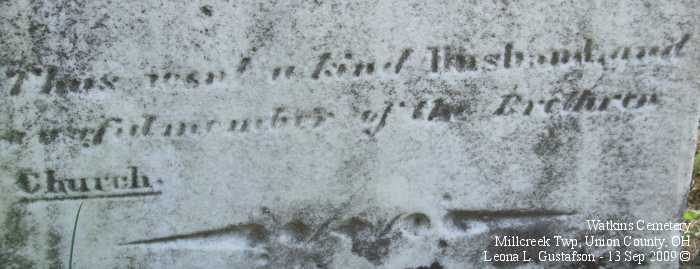 Thus went a kind Husband and
a useful member of the Brethren
Church.
Watkins Cemetery
Millcreek Twp, Union County, OH
Leona L. Gustafson - 13 Sep 2009 ©